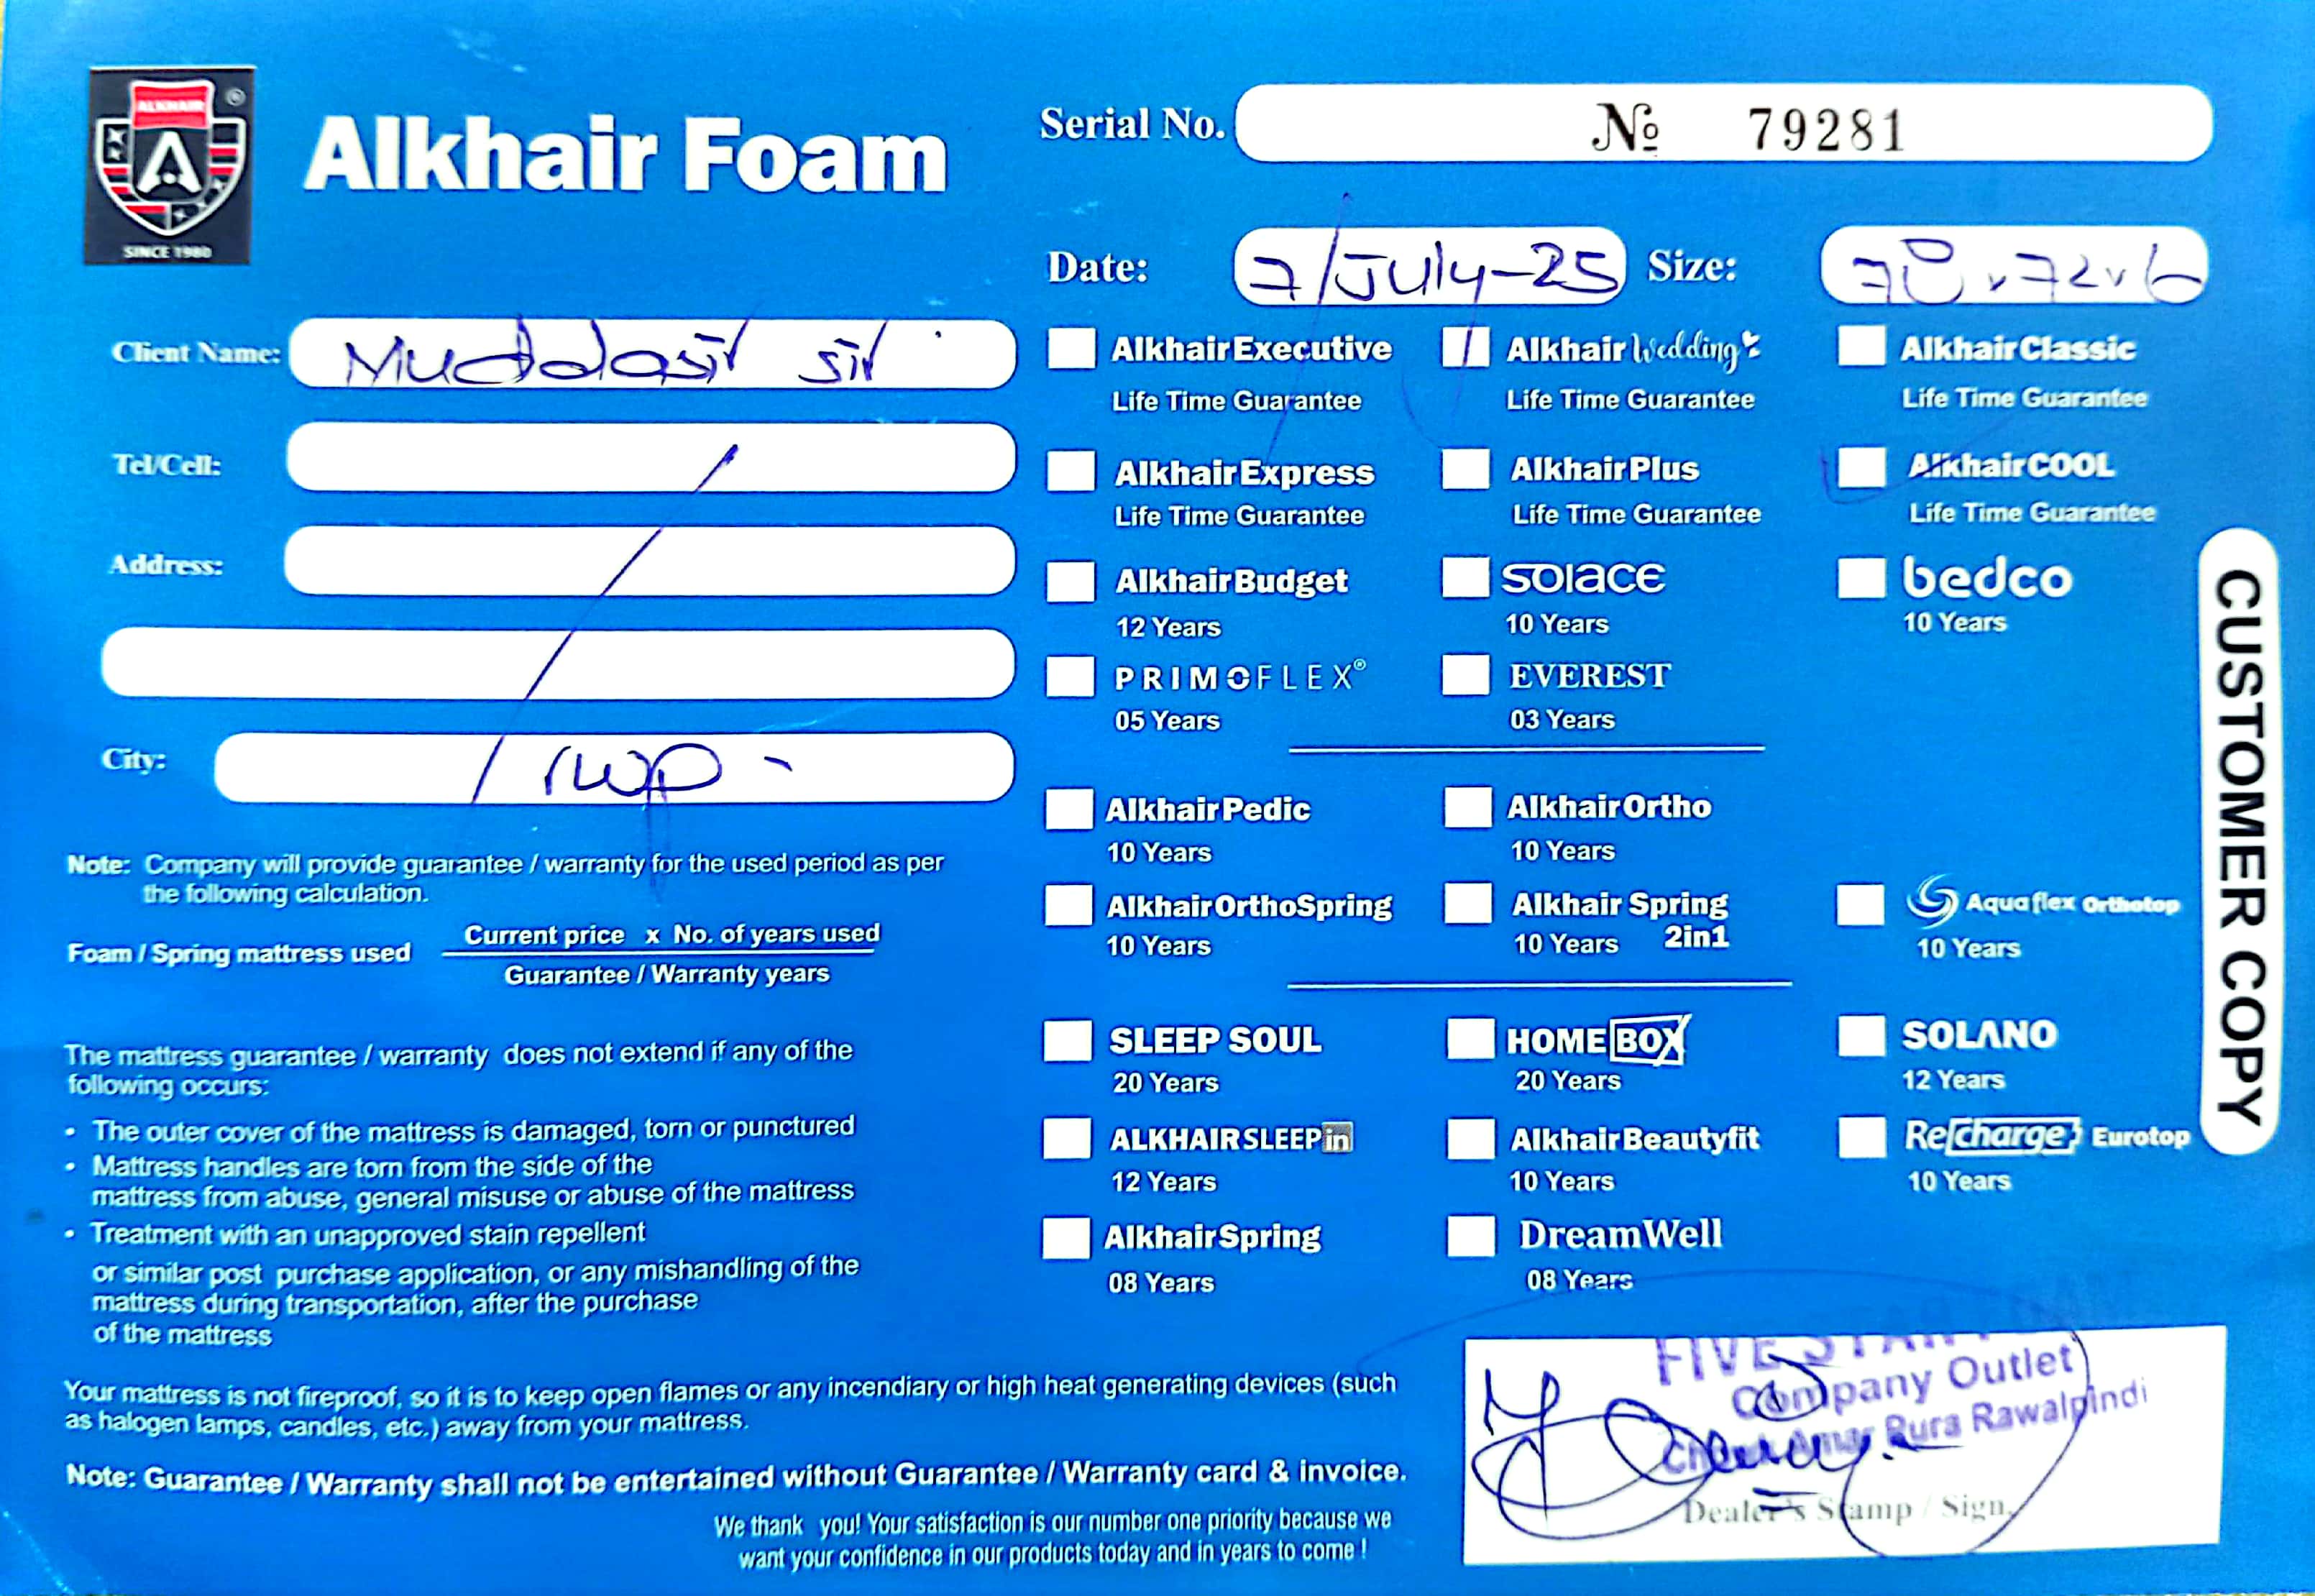 ALKHAIR ®
A
SINCE 1980
Alkhair Foam
Serial No. № 79281
Date: 7/July-25 Size: 78x72x6
Client Name: Muddasir sir
Tel/Cell:
Address:
City: rwp -
Note: Company will provide guarantee / warranty for the used period as per
the following calculation.
Foam / Spring mattress used
Current price x No. of years used
Guarantee / Warranty years
The mattress guarantee / warranty does not extend if any of the
following occurs:
• The outer cover of the mattress is damaged, torn or punctured
• Mattress handles are torn from the side of the
mattress from abuse, general misuse or abuse of the mattress
• Treatment with an unapproved stain repellent
or similar post purchase application, or any mishandling of the
mattress during transportation, after the purchase
of the mattress
Your mattress is not fireproof, so it is to keep open flames or any incendiary or high heat generating devices (such
as halogen lamps, candles, etc.) away from your mattress.
Note: Guarantee / Warranty shall not be entertained without Guarantee / Warranty card & invoice.
We thank you! Your satisfaction is our number one priority because we
want your confidence in our products today and in years to come !
Alkhair Executive Alkhair Wedding Alkhair Classic
Life Time Guarantee Life Time Guarantee Life Time Guarantee
Alkhair Express Alkhair Plus Alkhair COOL
Life Time Guarantee Life Time Guarantee Life Time Guarantee
Alkhair Budget SOlACE bedco
12 Years 10 Years 10 Years
PRIMOFLEX® EVEREST
05 Years 03 Years
Alkhair Pedic Alkhair Ortho
10 Years 10 Years
Alkhair OrthoSpring Alkhair Spring 2in1 Aquaflex Orthotop
10 Years 10 Years 10 Years
SLEEP SOUL HOME BOX SOLANO
20 Years 20 Years 12 Years
ALKHAIR SLEEP in Alkhair Beautyfit Recharge Eurotop
12 Years 10 Years 10 Years
Alkhair Spring DreamWell
08 Years 08 Years
FIVE STAR
Company Outlet
Amar Pura Rawalpindi
Dealer's Stamp / Sign.
CUSTOMER COPY